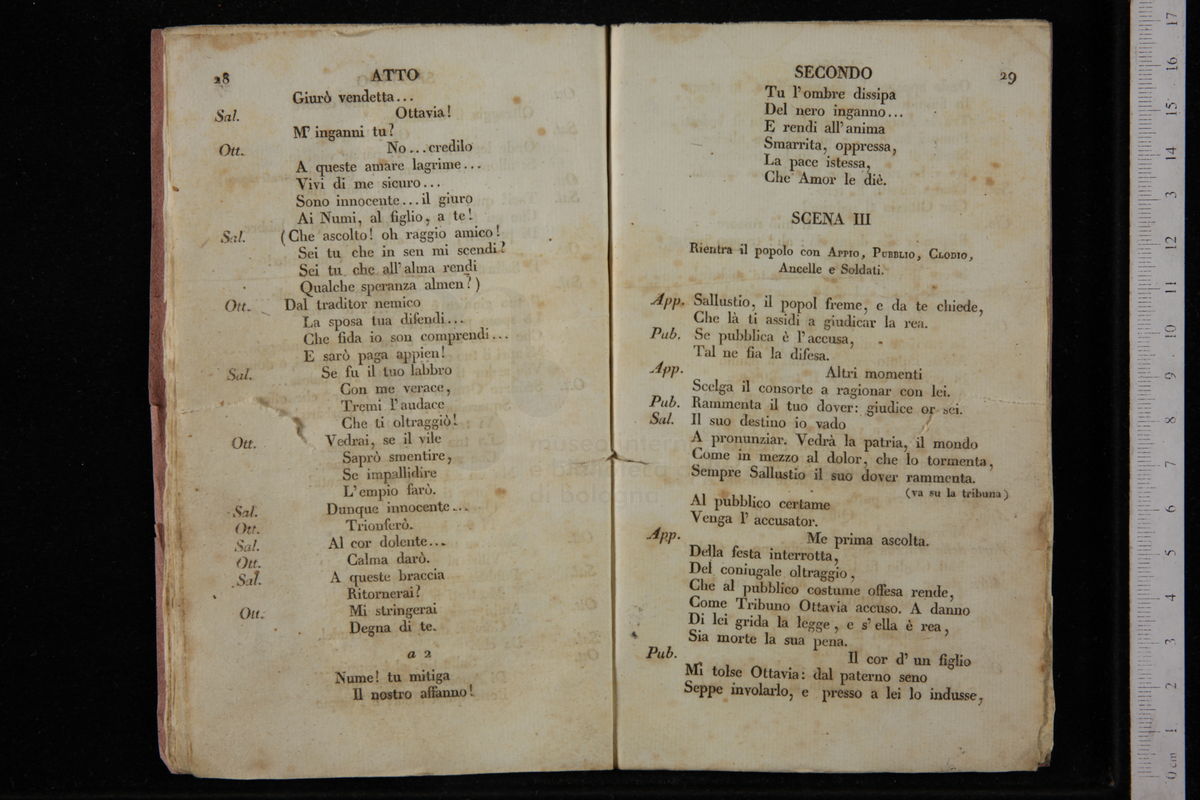 28
ATTO
Giurò vendetta...
Sal. Ottavia!
M' inganni tu?
Ott. No...credilo
A queste amare lagrime...
Vivi di me sicuro...
Sono innocente...il giuro
Ai Numi, al figlio, a te!
Sal. (Che ascolto! oh raggio amico!
Sei tu che in sen mi scendi?
Sei tu che all' alma rendi
Qualche speranza almen?)
Ott. Dal traditor nemico
La sposa tua difendi...
Che fida io son comprendi...
E sarò paga appien!
Sal. Se fu il tuo labbro
Con me verace,
Tremi l' audace
Che ti oltraggiò!
Ott. Vedrai, se il vile
Saprò smentire,
Se impallidire
L' empio farò.
Sal. Dunque innocente...
Ott. Trionferò.
Sal. Al cor dolente...
Ott. Calma darò.
Sal. A queste braccia
Ritornerai?
Ott. Mi stringerai
Degna di te.
a 2
Nume! tu mitiga
Il nostro affanno!
SECONDO
29
Tu l' ombre dissipa
Del nero inganno...
E rendi all' anima
Smarrita, oppressa,
La pace istessa,
Che Amor le diè.
SCENA III
Rientra il popolo con Appio, Pubblio, Clodio,
Ancelle e Soldati.
App. Sallustio, il popol freme, e da te chiede,
Che là ti assidi a giudicar la rea.
Pub. Se pubblica è l' accusa,
Tal ne fia la difesa.
App. Altri momenti
Scelga il consorte a ragionar con lei.
Pub. Rammenta il tuo dover: giudice or sei.
Sal. Il suo destino io vado
A pronunziar. Vedrà la patria, il mondo
Come in mezzo al dolor, che lo tormenta,
Sempre Sallustio il suo dover rammenta.
(va su la tribuna)
Al pubblico certame
Venga l' accusator.
App. Me prima ascolta.
Della festa interrotta,
Del coniugale oltraggio,
Che al pubblico costume offesa rende,
Come Tribuno Ottavia accuso. A danno
Di lei grida la legge, e s' ella è rea,
Sia morte la sua pena.
Pub. Il cor d' un figlio
Mi tolse Ottavia: dal paterno seno
Seppe involarlo, e presso a lei lo indusse,
museo intern
e biblioteca
di bologna
0 cm 1 2 3 4 5 6 7 8 9 10 11 12 13 14 15 16 17